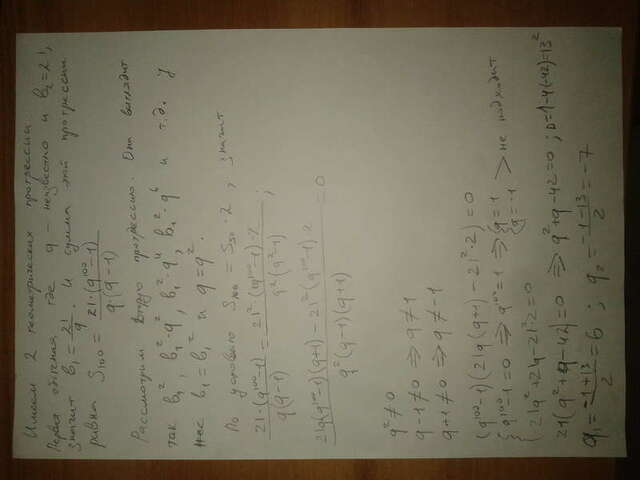 Имеем 2 геометрических прогрессии.
Первая обычная, где q - неизвестно и b₂=21,
значит b₁=21/q. И сумма этой прогрессии
равна S₁₀₀ = 21·(q¹⁰⁰-1)/q(q-1)
Рассмотрим вторую прогрессию. Она выглядит
так b₁², b₁²·q², b₁²·q⁴, b₁²·q⁶ и т.д. У
нас b₁=b₁² и q=q².
По условию S₁₀₀ = S₅₀·2, значит
21·(q¹⁰⁰-1)/q(q-1) = 21²·(q¹⁰⁰-1)·2/q²(q²-1);
21q(q¹⁰⁰-1)(q+1)-21²(q¹⁰⁰-1)·2/q²(q-1)(q+1) = 0
q²≠0
q-1≠0 ⇒ q≠1
q+1≠0 ⇒ q≠-1
(q¹⁰⁰-1)(21q(q+1)-21²·2)=0
{q¹⁰⁰-1=0 ⇒ q¹⁰⁰=1 ⇒ {q=1 q=-1 > не подходит
{21q²+21q-21²·2=0
21(q²+q-42)=0 ⇒ q²+q-42=0; D=1-4·(-42)=13²
q₁=(-1+13)/2=6; q₂=(-1-13)/2=-7